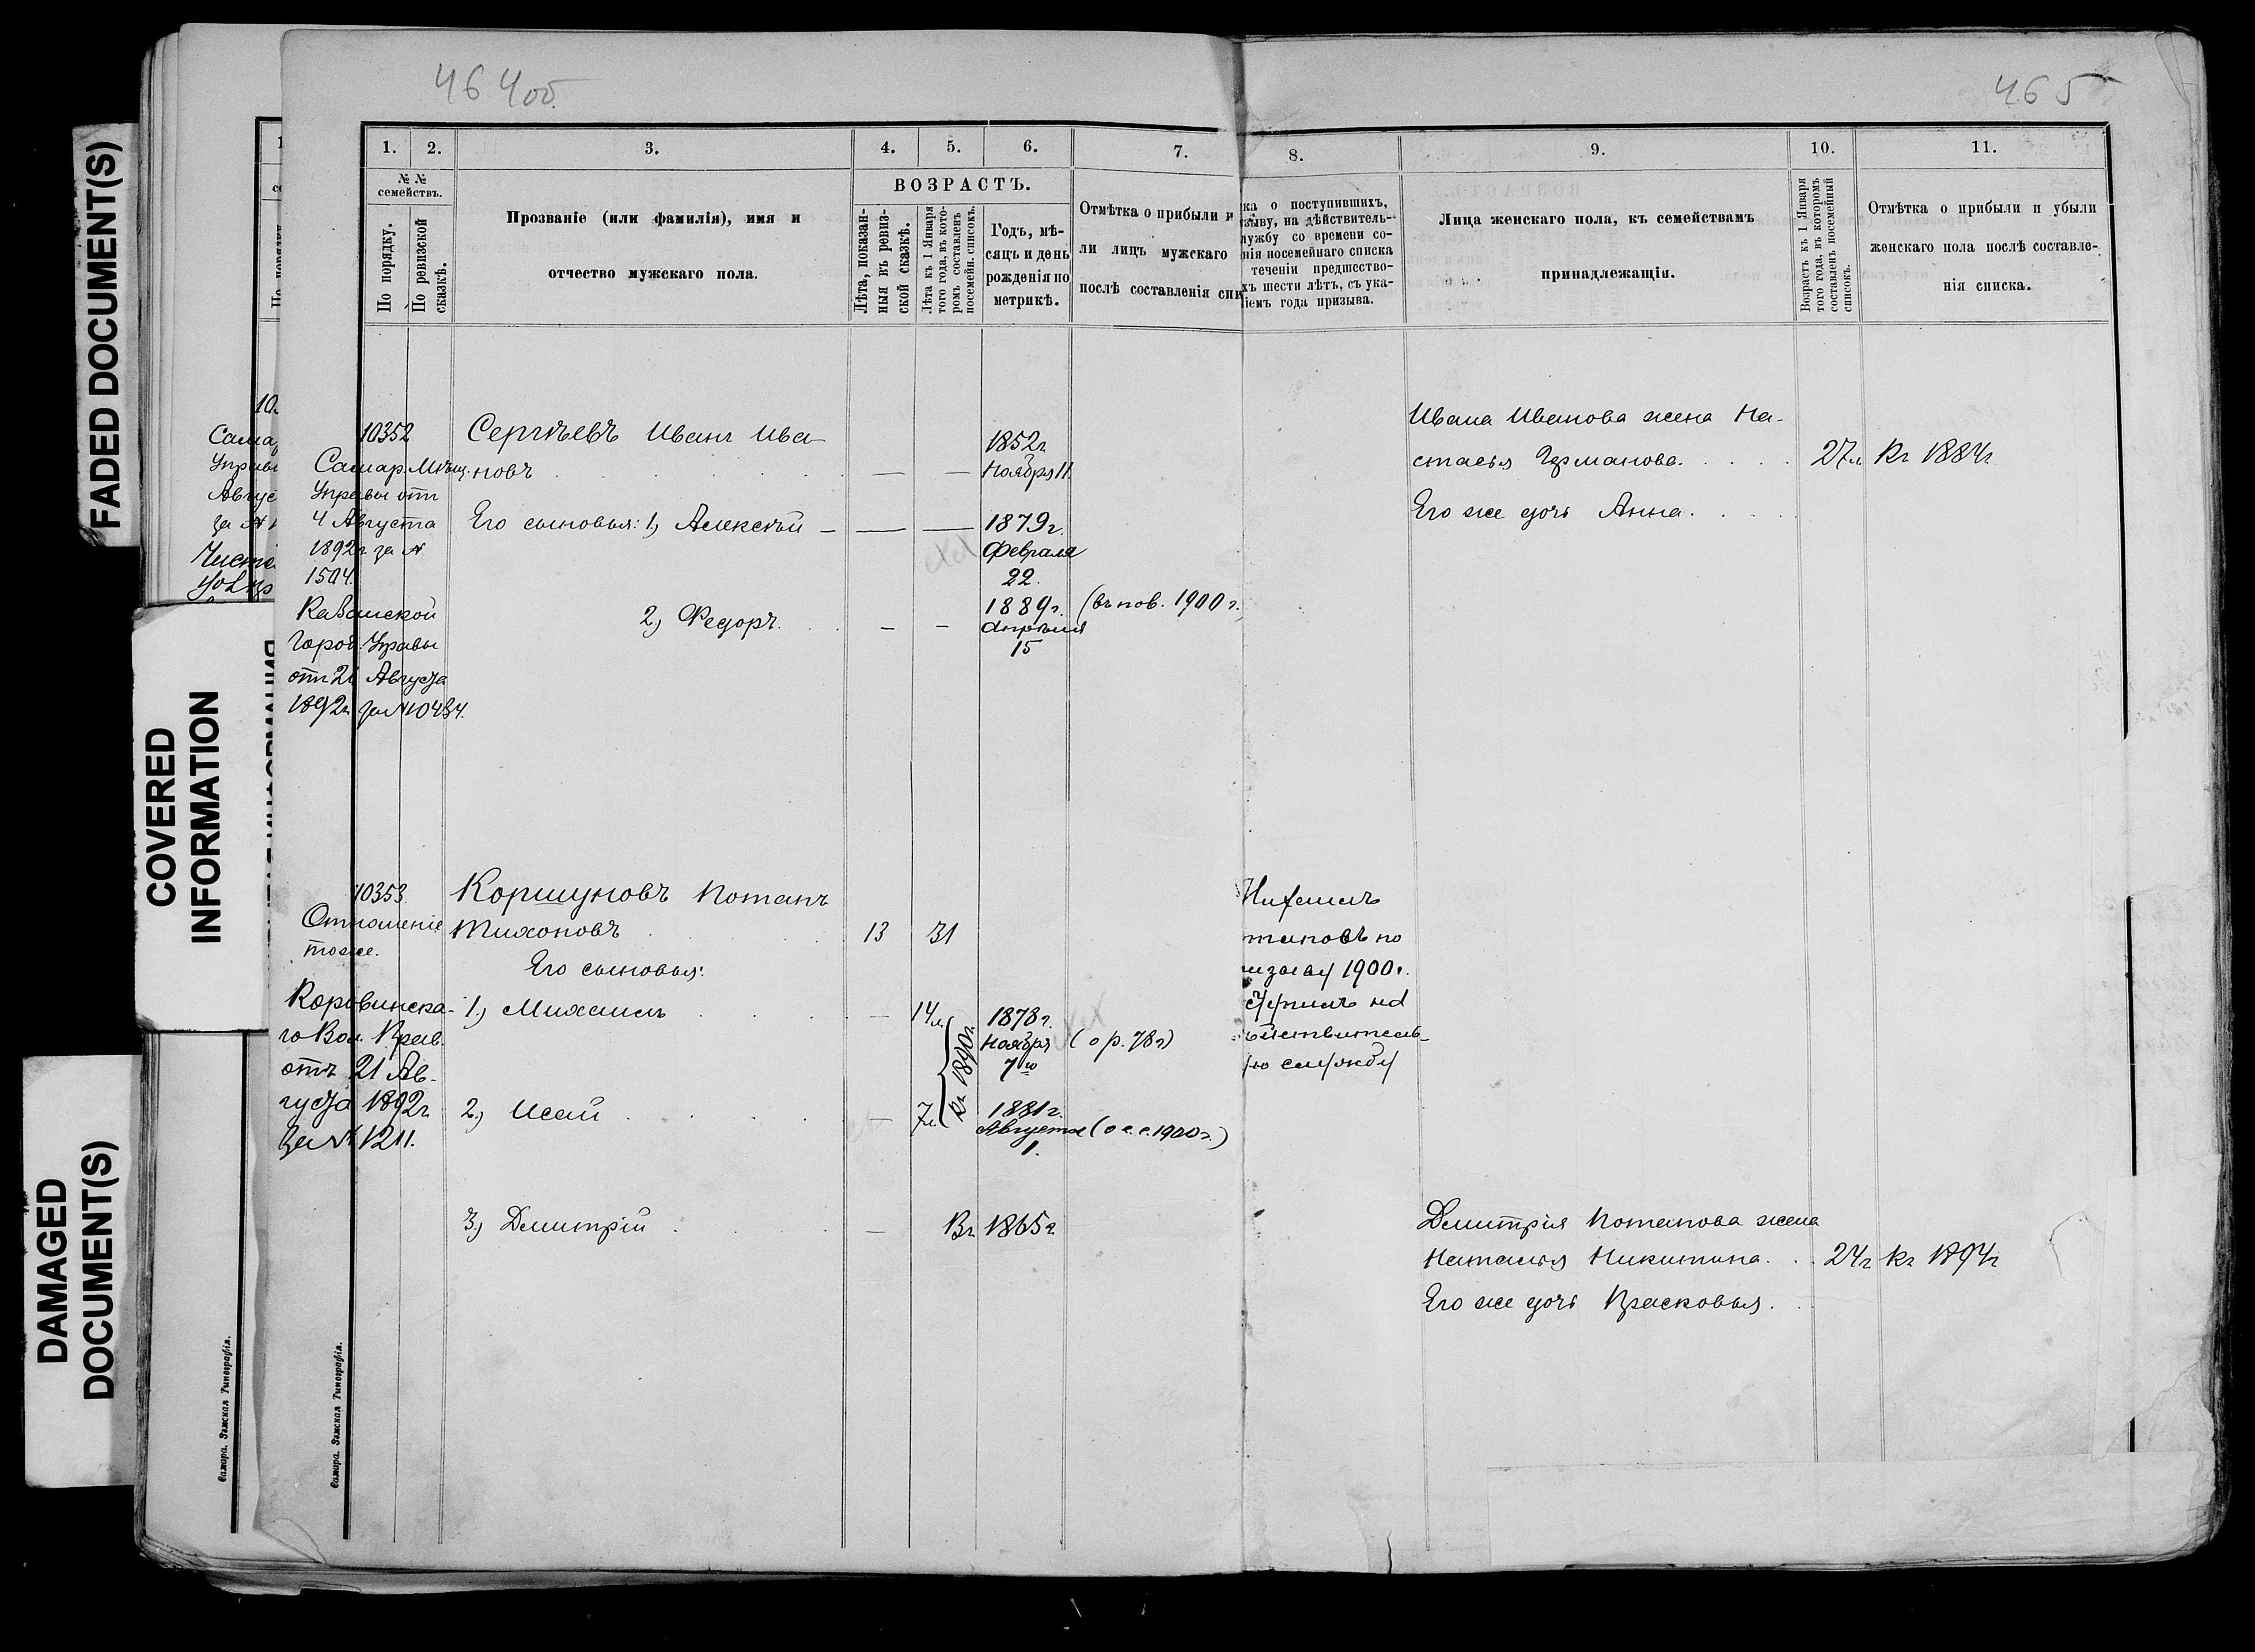 FADED DOCUMENT(S)
COVERED INFORMATION
DAMAGED DOCUMENT(S)
464об.
465
1. 2. 3. 4. 5. 6. 7. 8. 9. 10. 11.
№ № семействъ.
По порядку.
По ревизской сказкѣ.
Прозваніе (или фамилія), имя и
отчество мужскаго пола.
ВОЗРАСТЪ.
Лѣта, показан-
ныя въ ревиз-
ской сказкѣ.
Лѣта къ 1 Января
того года, въ кото-
ромъ составленъ
посемейн. списокъ.
Годъ, мѣ-
сяцъ и день
рожденія по
метрикѣ.
Отмѣтка о прибыли и
ли лицъ мужскаго
послѣ составленія спи
ка о поступившихъ,
зыву, на дѣйствитель-
лужбу со времени со-
нія посемейнаго списка
теченіи предшество-
хъ шести лѣтъ, съ ука-
іемъ года призыва.
Лица женскаго пола, къ семействамъ
принадлежащія.
Возрастъ къ 1 Января
того года, въ которомъ
составленъ посемейный
списокъ.
Отмѣтка о прибыли и убыли
женскаго пола послѣ составле-
нія списка.
10352
Самар. Мѣщ.
Управы отъ
4 Августа
1892г. за №
1504.
Город. Управы
отъ 21 Августа
1892г. за № 10434.
Сергѣевъ Иванъ Ива-
новъ — —
1852г.
Ноября 11.
Его сыновья: 1) Алексѣй — — —
1879г.
Февраля
22.
2) Федоръ. — —
1889г.
Апрѣля
15
(въ нов. 1900 г.
Ивана Иванова жена На-
стасья Германова. 27л. Къ 1884г.
Его же дочь Анна.
10353.
Отношеніе
тоже.
Коровинска-
го Вол. Прав.
отъ 21 Ав-
густа 1892г.
за № 1211.
Коршуновъ Потапъ
Тихоновъ 13 31
Его сыновья:
1) Михаилъ — 14л.
1878г.
Ноября
7го
(о р. 78г)
Къ 1890г.
2) Исай — 7л.
1881г.
Августа
1.
(о с. с. 1900г.)
3) Дмитрій — Въ 1865г.
таповъ по
изыву 1900г.
ступилъ на
ѣйствитель-
ю службу
Дмитрія Потапова жена
Наталья Никитина. 24г. Къ 1894г.
Его же дочь Прасковья.
Самара. Земская Типографія.
Самара. Земская Типографія.